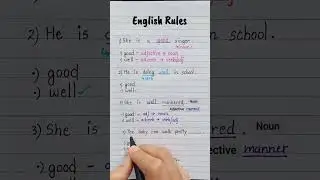 English Rules
1) She is a good singer.
(Noun)
good - adjective + noun
well - adverb + verb/adj
2) He is doing well in school.
verb
good
well
3) She is well mannered. Noun
Adjective manner
good - adj + noun
well - adverb + verb/adj
The baby can walk pretty
2) He is
good
well
3) She is
school.
red. Noun
manner